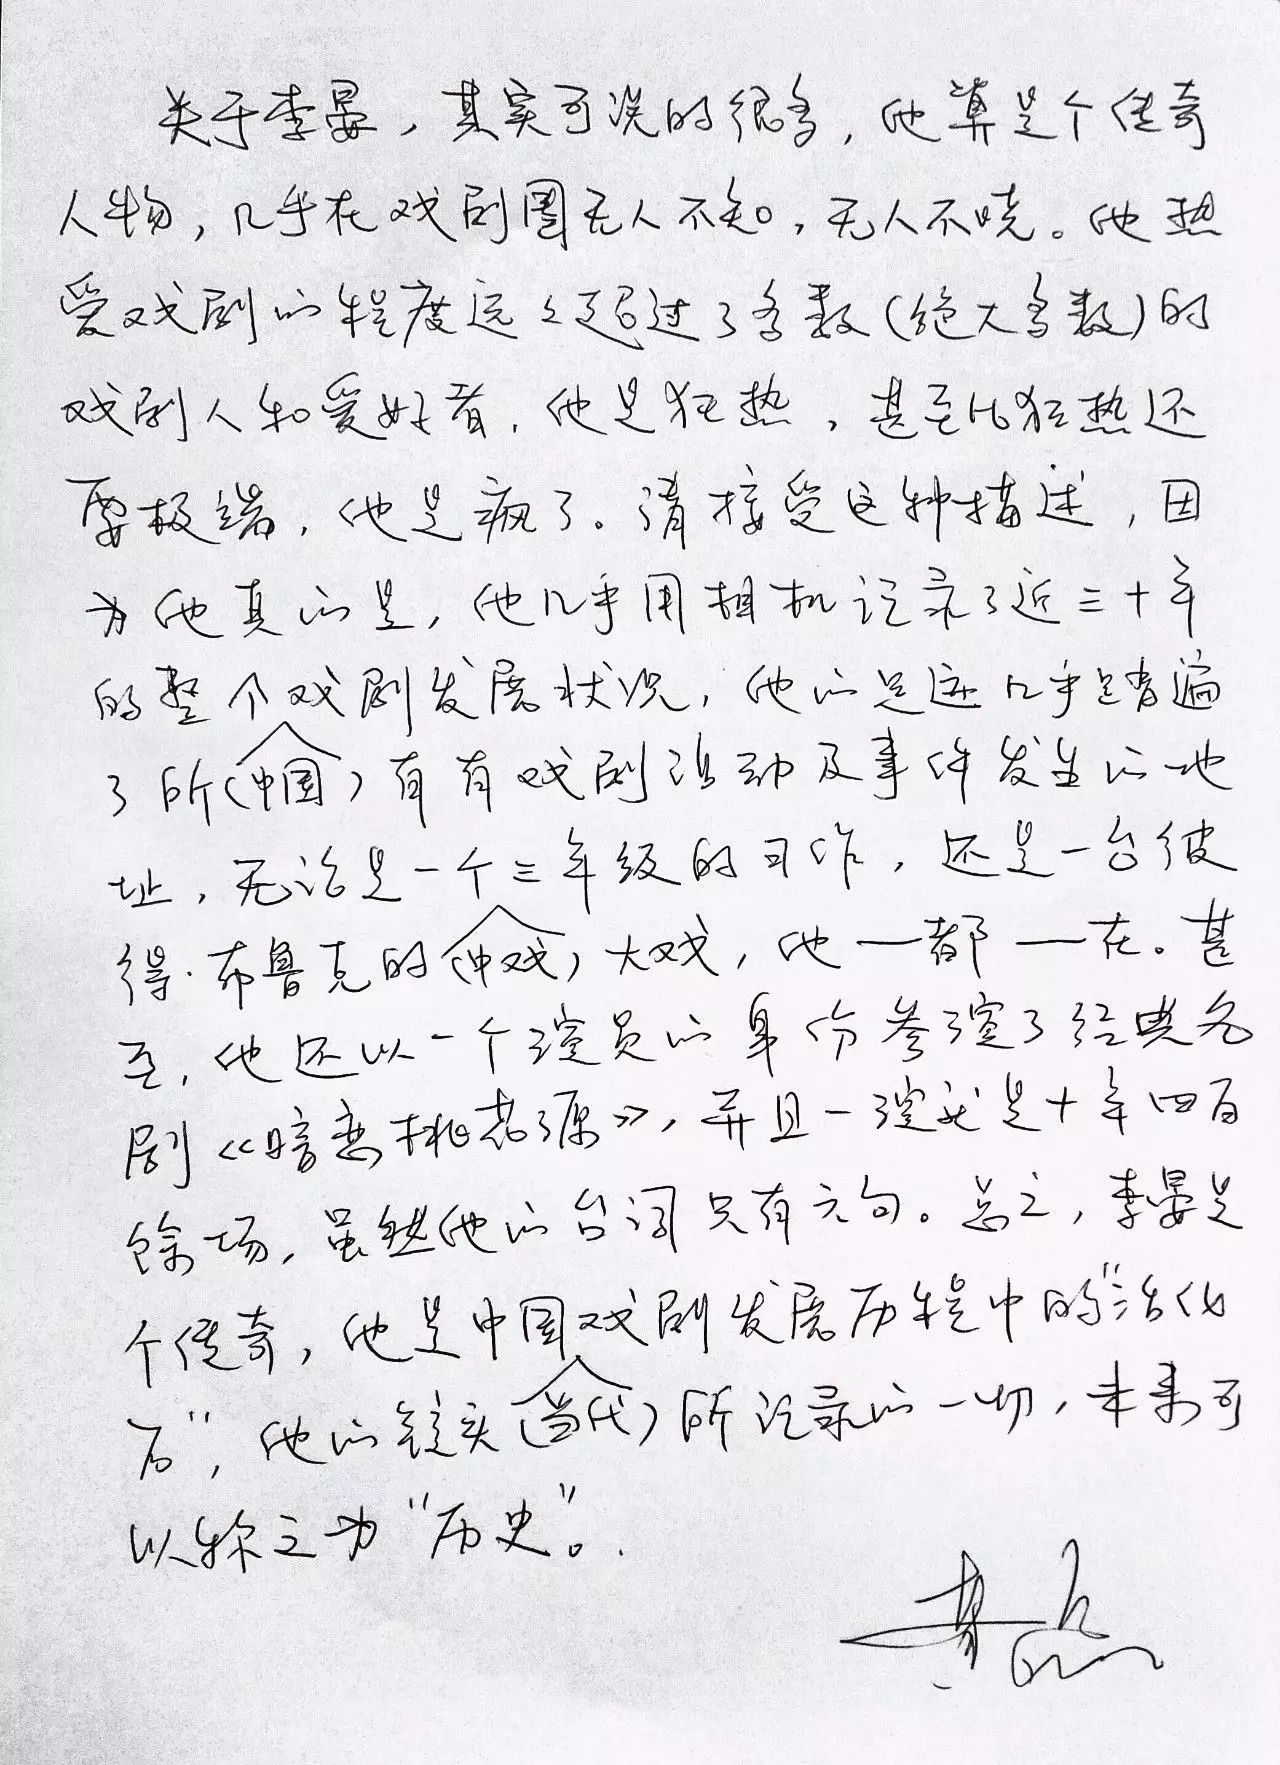 关于李晏，其实可说的很多，他算是个传奇
人物，几乎在戏剧圈无人不知，无人不晓。他热
爱戏剧的程度远远超过了多数(绝大多数)的
戏剧人和爱好者，他是狂热，甚至比狂热还
要极端，他是疯了。请接受这种描述，因
为他真的是，他几乎用相机记录了近三十年
的整个戏剧发展状况，他的足迹几乎踏遍
了所(中国)有有戏剧活动及事件发生的地
址，无论是一个三年级的习作，还是一台彼
得·布鲁克的(中戏)大戏，他一都一在。甚
至，他还以一个演员的身份参演了经典名
剧《暗恋桃花源》，并且一演就是十年四百
余场，虽然他的台词只有六句。总之，李晏是
个传奇，他是中国戏剧发展历程中的"活化
石"，他的镜头(当代)所记录的一切，未来可
以称之为"历史"。